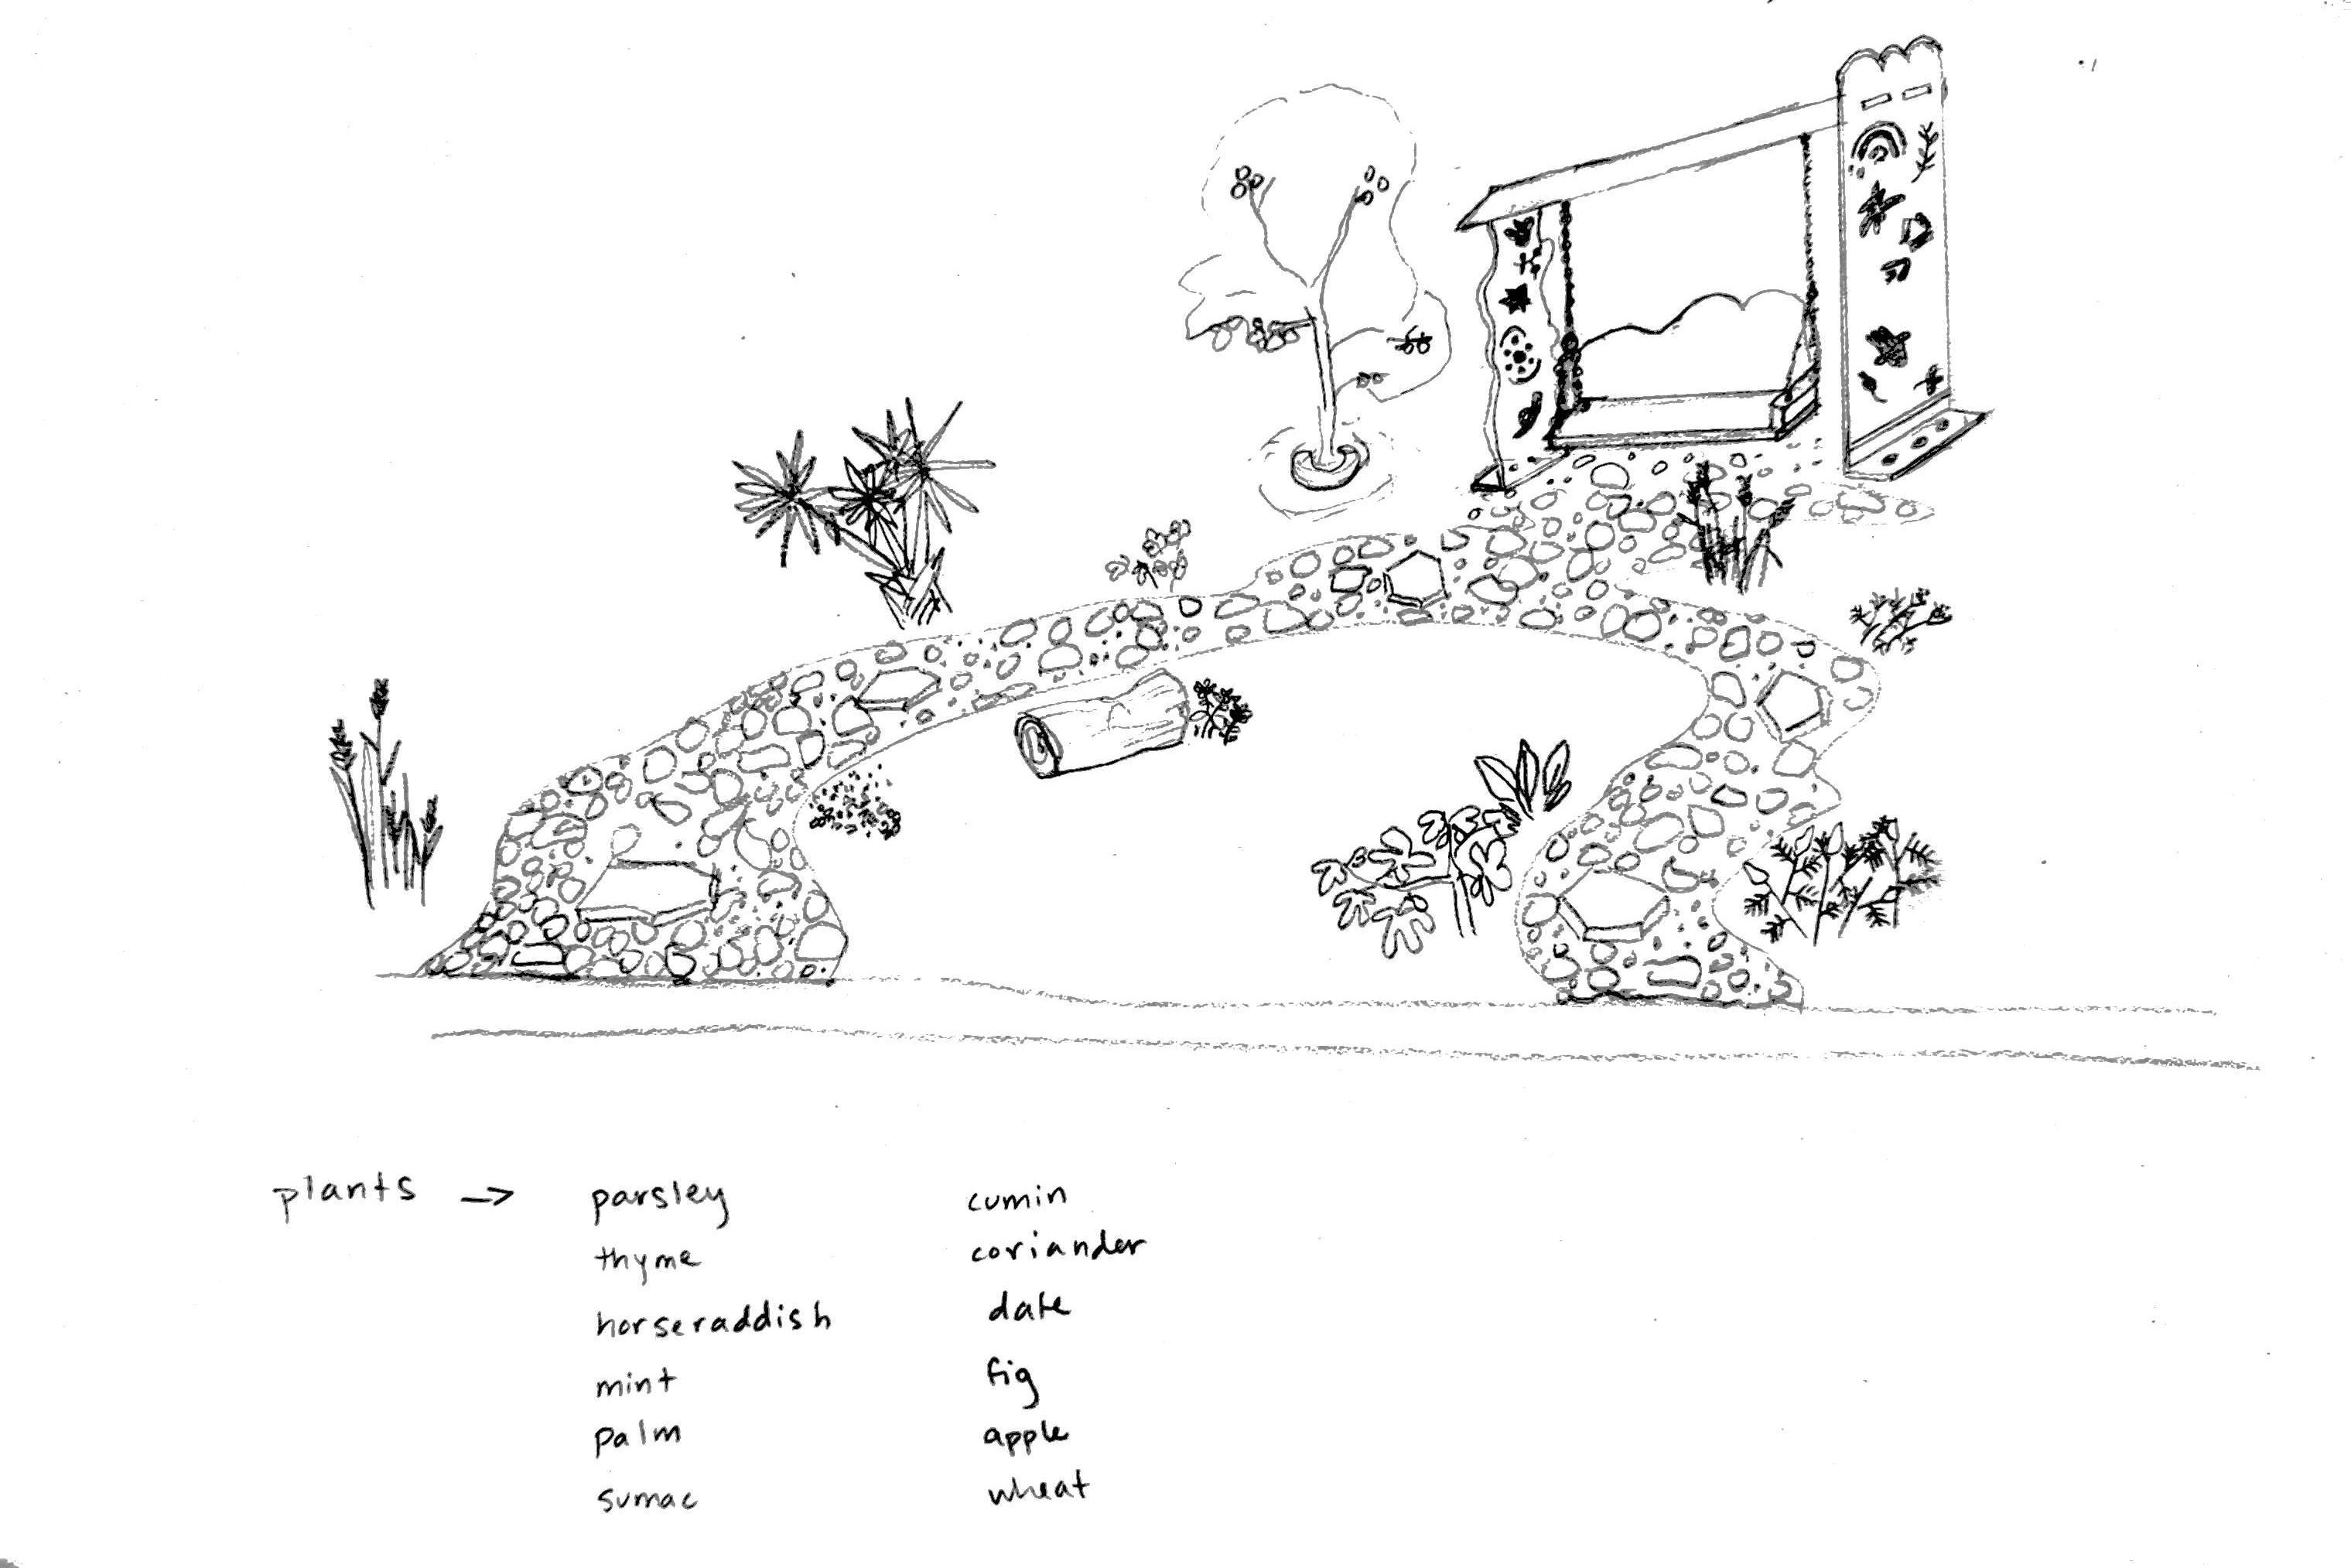 plants → parsley
thyme
horseraddish
mint
palm
sumac
cumin
coriander
date
fig
apple
wheat